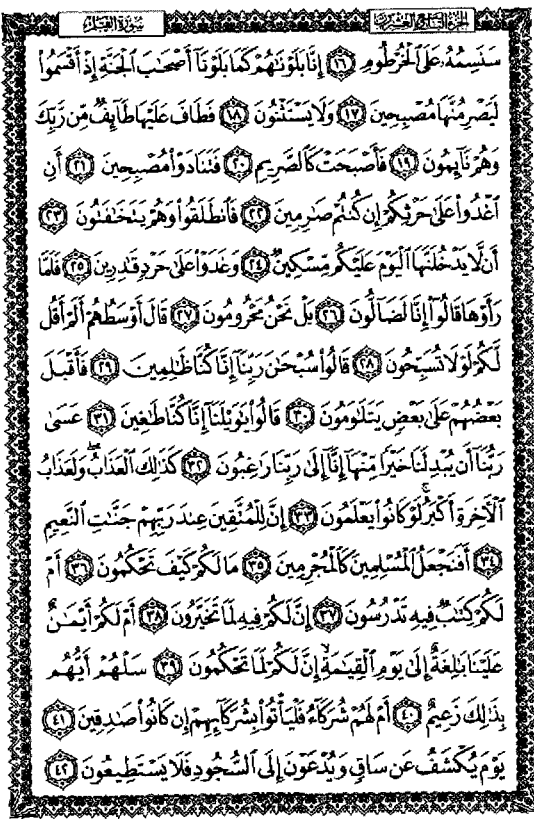 الجزء التاسع والعشرون
سورة القلم
سَنَسِمُهُۥ عَلَى ٱلْخُرْطُومِ ١٦ إِنَّا بَلَوْنَٰهُمْ كَمَا بَلَوْنَآ أَصْحَٰبَ ٱلْجَنَّةِ إِذْ أَقْسَمُوا۟
لَيَصْرِمُنَّهَا مُصْبِحِينَ ١٧ وَلَا يَسْتَثْنُونَ ١٨ فَطَافَ عَلَيْهَا طَآئِفٌ مِّن رَّبِّكَ
وَهُمْ نَآئِمُونَ ١٩ فَأَصْبَحَتْ كَٱلصَّرِيمِ ٢٠ فَتَنَادَوْا۟ مُصْبِحِينَ ٢١ أَنِ
ٱغْدُوا۟ عَلَىٰ حَرْثِكُمْ إِن كُنتُمْ صَٰرِمِينَ ٢٢ فَٱنطَلَقُوا۟ وَهُمْ يَتَخَٰفَتُونَ ٢٣
أَن لَّا يَدْخُلَنَّهَا ٱلْيَوْمَ عَلَيْكُم مِّسْكِينٌ ٢٤ وَغَدَوْا۟ عَلَىٰ حَرْدٍ قَٰدِرِينَ ٢٥ فَلَمَّا
رَأَوْهَا قَالُوٓا۟ إِنَّا لَضَآلُّونَ ٢٦ بَلْ نَحْنُ مَحْرُومُونَ ٢٧ قَالَ أَوْسَطُهُمْ أَلَمْ أَقُل
لَّكُمْ لَوْلَا تُسَبِّحُونَ ٢٨ قَالُوا۟ سُبْحَٰنَ رَبِّنَآ إِنَّا كُنَّا ظَٰلِمِينَ ٢٩ فَأَقْبَلَ
بَعْضُهُمْ عَلَىٰ بَعْضٍ يَتَلَٰوَمُونَ ٣٠ قَالُوا۟ يَٰوَيْلَنَآ إِنَّا كُنَّا طَٰغِينَ ٣١ عَسَىٰ
رَبُّنَآ أَن يُبْدِلَنَا خَيْرًا مِّنْهَآ إِنَّآ إِلَىٰ رَبِّنَا رَٰغِبُونَ ٣٢ كَذَٰلِكَ ٱلْعَذَابُ ۖ وَلَعَذَابُ
ٱلْءَاخِرَةِ أَكْبَرُ ۚ لَوْ كَانُوا۟ يَعْلَمُونَ ٣٣ إِنَّ لِلْمُتَّقِينَ عِندَ رَبِّهِمْ جَنَّٰتِ ٱلنَّعِيمِ
٣٤ أَفَنَجْعَلُ ٱلْمُسْلِمِينَ كَٱلْمُجْرِمِينَ ٣٥ مَا لَكُمْ كَيْفَ تَحْكُمُونَ ٣٦ أَمْ
لَكُمْ كِتَٰبٌ فِيهِ تَدْرُسُونَ ٣٧ إِنَّ لَكُمْ فِيهِ لَمَا تَخَيَّرُونَ ٣٨ أَمْ لَكُمْ أَيْمَٰنٌ
عَلَيْنَا بَٰلِغَةٌ إِلَىٰ يَوْمِ ٱلْقِيَٰمَةِ ۙ إِنَّ لَكُمْ لَمَا تَحْكُمُونَ ٣٩ سَلْهُمْ أَيُّهُم
بِذَٰلِكَ زَعِيمٌ ٤٠ أَمْ لَهُمْ شُرَكَآءُ فَلْيَأْتُوا۟ بِشُرَكَآئِهِمْ إِن كَانُوا۟ صَٰدِقِينَ ٤١
يَوْمَ يُكْشَفُ عَن سَاقٍ وَيُدْعَوْنَ إِلَى ٱلسُّجُودِ فَلَا يَسْتَطِيعُونَ ٤٢